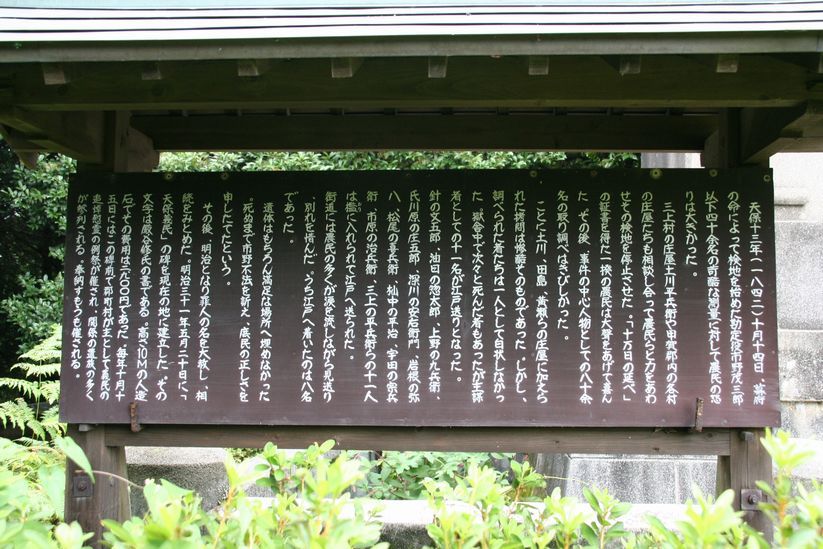 天保十三年(一八四二)十月十四日、幕府
の命によって検地を始めた勘定役市野茂三郎
以下四十余名の苛酷な測量に対して農民の恐
りは大きかった。
三上村の庄屋土川平兵衛や田賀郡内の各村
の庄屋たちも相談し合って農民らと力をあわ
せその検地を停止させた。「十万日の延べ」
の証書を得た一揆の農民は大声をあげて喜ん
だ。その後、事件の中心人物としての八十余
名の取り調べはきびしかった。
ことに土川、田島、黄瀬らの庄屋に加えら
れた拷問は残酷そのものであった。しかし、
調べられた者たちは一人として白状しなかっ
た。獄舎中で次々と死んだ者もあったが主謀
者としての十一名が江戸送りとなった。
針の文五郎、油日の惣太郎、上野の九兵衛、
氏川原の庄五郎、深川の安右衛門、岩根の弥
八、松尾の喜兵衛、杣中の平治、宇田の宗兵
衛、市原の治兵衛、三上の平兵衛らの十一人
は檻に入れられて江戸へ送られた。
街道には農民の多くが涙を流しながら見送り
別れを惜しんだ。うち江戸へ着いたのは八名
であった。
遺体はもちろん満足な場所へ埋めなかった
。死ぬまで市野不法を訴え、庶民の正しさを
申したてたという。
その後、明治となり罪人の名を大赦し、相
続をみとめた。明治三十一年五月二十日に、
天保義民」の碑を現在の地に建立した。その
文字は巌谷修氏の書である。高さ10Mの人造
石でその費用は二六〇〇円であった。毎年十月十
五日にはこの碑前で郡町村が主として義民の
追悼慰霊の例祭が催され、関係の遺族の多く
が参列される。奉納すもうも催される。